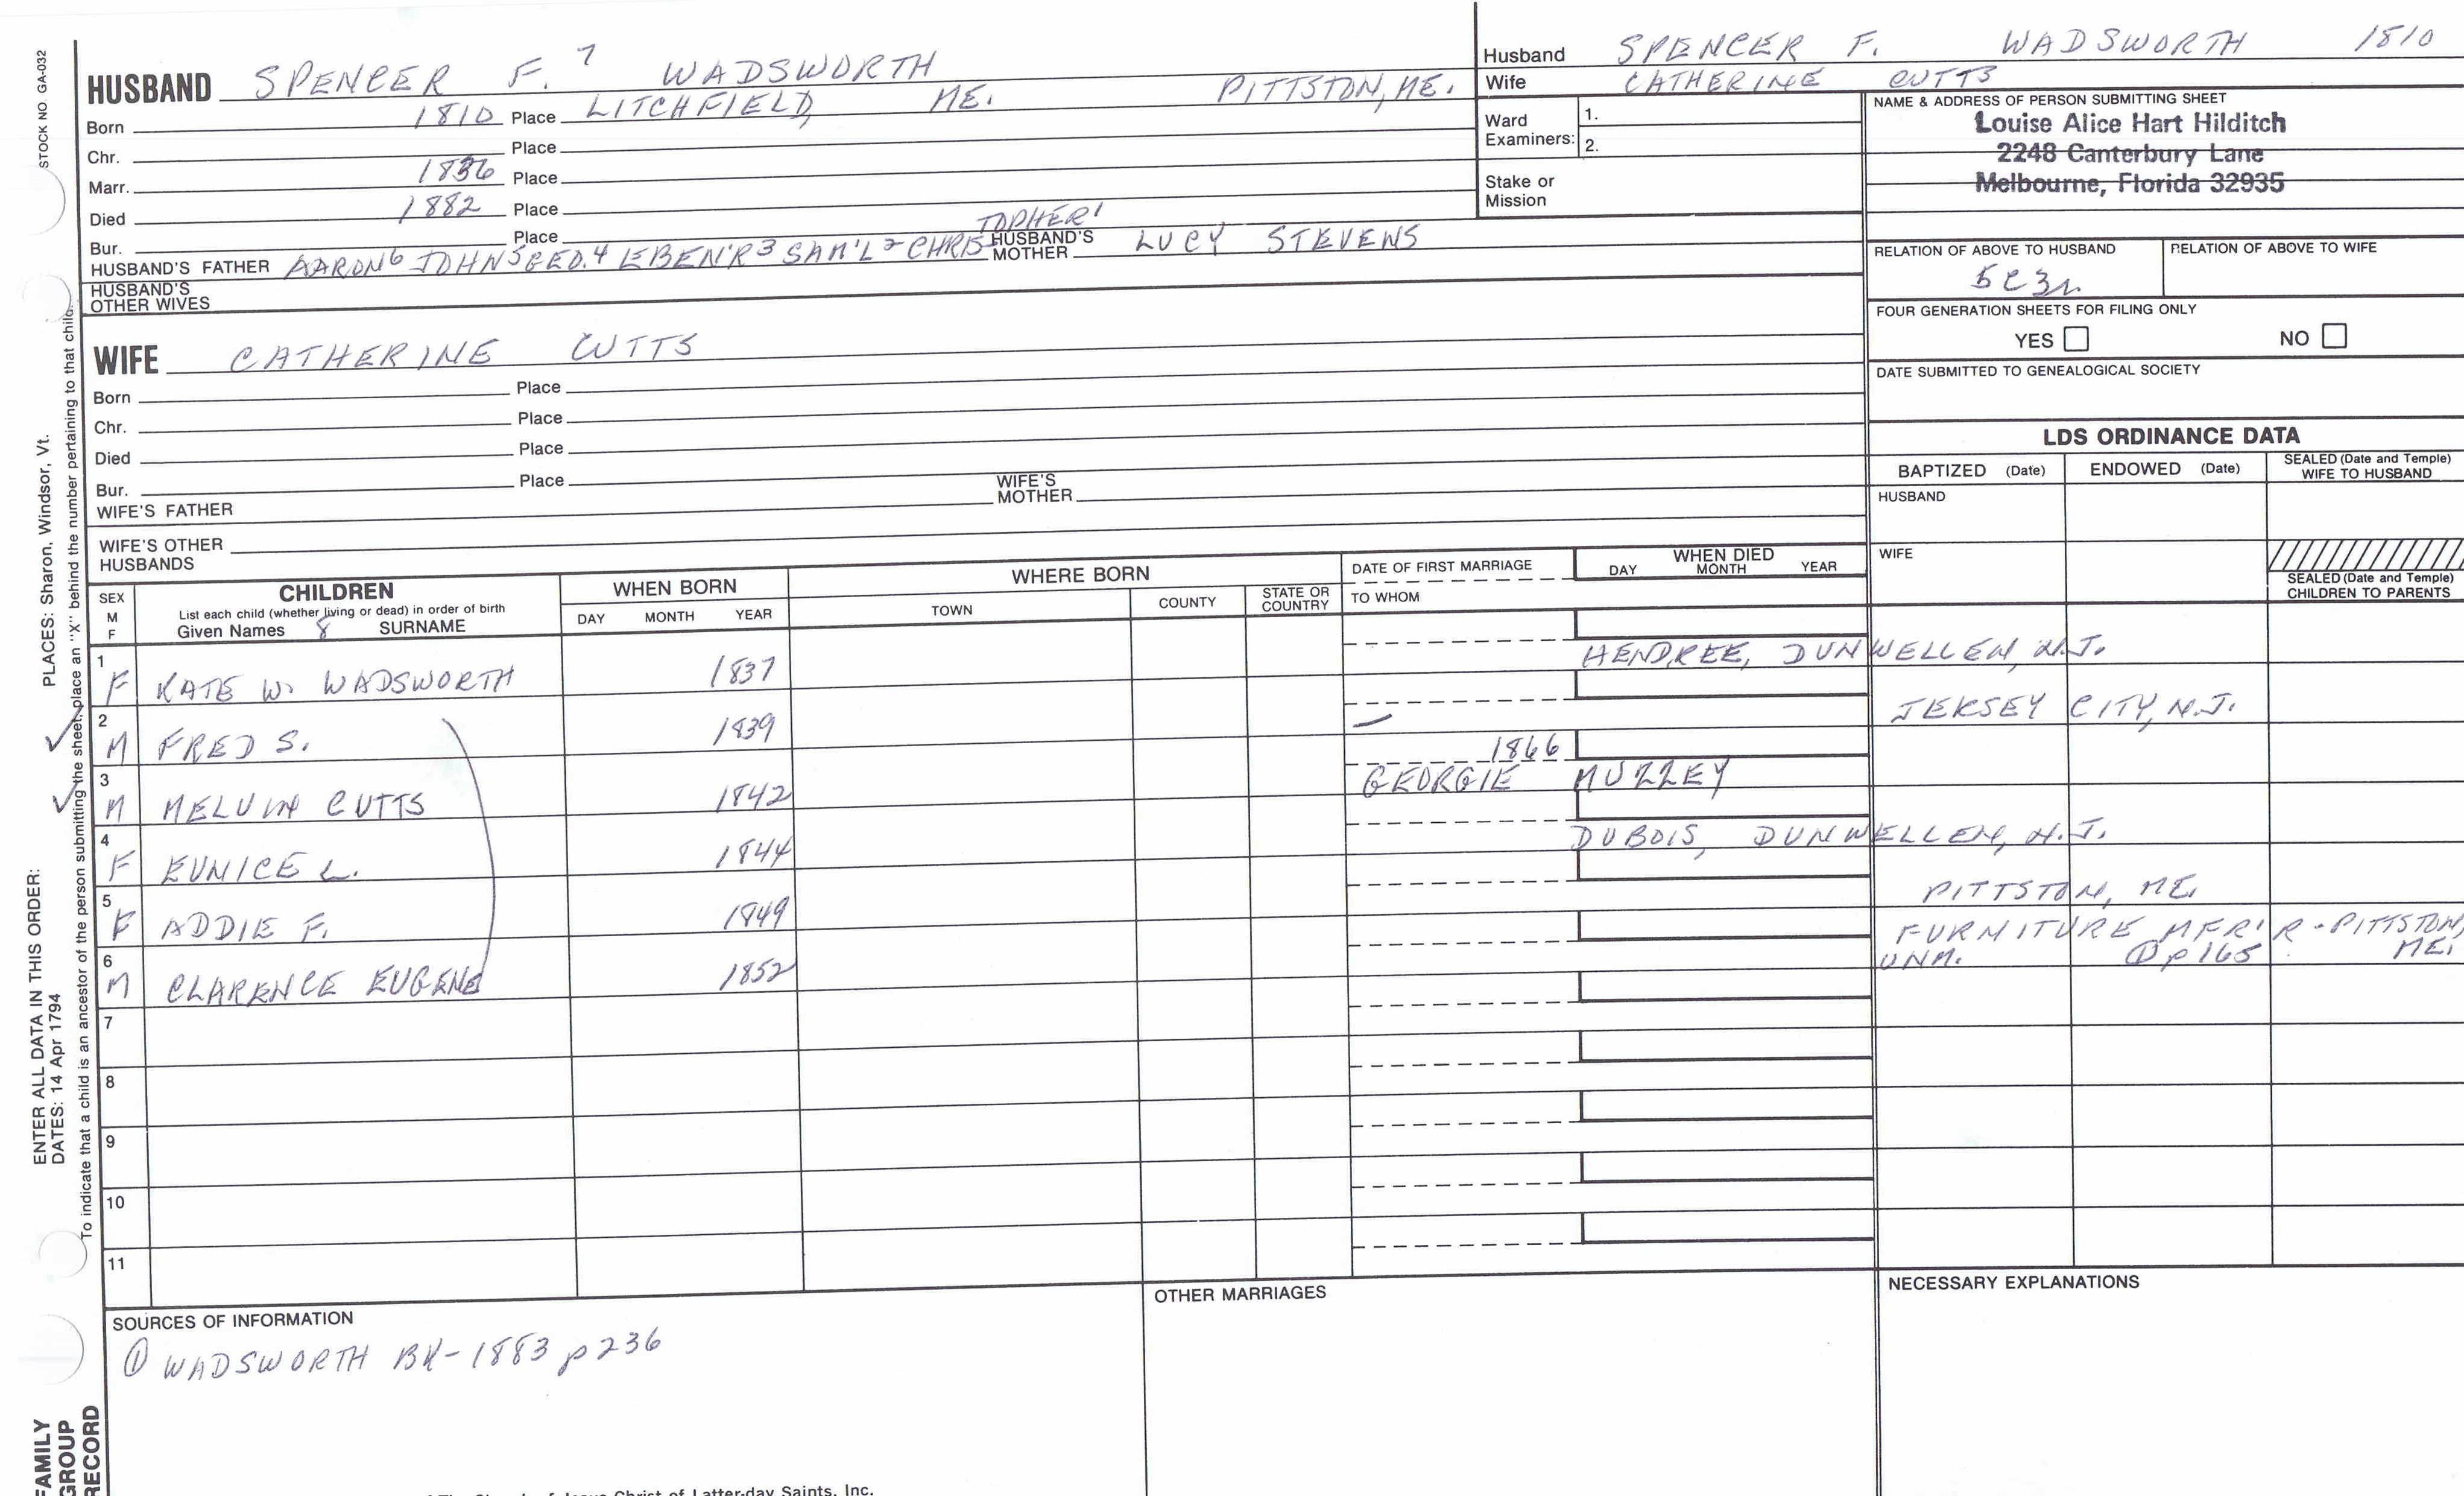 STOCK NO. GA-032
PLACES: Sharon, Windsor, Vt.
ENTER ALL DATA IN THIS ORDER:
DATES: 14 Apr 1794
To indicate that a child is an ancestor of the person submitting the sheet, place an "X" behind the number pertaining to that child.
FAMILY GROUP RECORD
HUSBAND SPENCER F.7 WADSWORTH
Born 1810 Place LITCHFIELD, ME. PITTSTON, ME.
Chr. Place
Marr. 1836 Place
Died 1882 Place
Bur. Place
HUSBAND'S FATHER AARON6 JOHN5 GEO.4 EBEN'R3 SAM'L2 CHRISTOPHER1 HUSBAND'S MOTHER LUCY STEVENS
HUSBAND'S OTHER WIVES
WIFE CATHERINE CUTTS
Born Place
Chr. Place
Died Place
Bur. Place
WIFE'S FATHER WIFE'S MOTHER
WIFE'S OTHER HUSBANDS
Husband SPENCER F. WADSWORTH 1810
Wife CATHERINE CUTTS
Ward Examiners: 1.
2.
Stake or Mission
NAME & ADDRESS OF PERSON SUBMITTING SHEET
Louise Alice Hart Hilditch
2248 Canterbury Lane
Melbourne, Florida 32935
RELATION OF ABOVE TO HUSBAND RELATION OF ABOVE TO WIFE
5C3r
FOUR GENERATION SHEETS FOR FILING ONLY
YES NO
DATE SUBMITTED TO GENEALOGICAL SOCIETY
LDS ORDINANCE DATA
BAPTIZED (Date) ENDOWED (Date) SEALED (Date and Temple) WIFE TO HUSBAND
HUSBAND
WIFE
SEALED (Date and Temple) CHILDREN TO PARENTS
SEX M F
CHILDREN
List each child (whether living or dead) in order of birth
Given Names 8 SURNAME
WHEN BORN
DAY MONTH YEAR
WHERE BORN
TOWN COUNTY STATE OR COUNTRY
DATE OF FIRST MARRIAGE
TO WHOM
WHEN DIED
DAY MONTH YEAR
1 F KATE W. WADSWORTH 1837 HENDREE, DUNWELLEN, N.J.
2 M FRED S. 1839 — JERSEY CITY, N.J.
3 M MELVIN CUTTS 1842 1866 GEORGIE MUZZEY
4 F EUNICE L. 1844 DUBOIS, DUNWELLEN, N.J.
5 F ADDIE F. 1849 PITTSTON, ME.
6 M CLARENCE EUGENE 1852 FURNITURE MFR'R - PITTSTON, ME.
UNM. ① p 165
7
8
9
10
11
SOURCES OF INFORMATION
① WADSWORTH BK-1883 p 236
OTHER MARRIAGES
NECESSARY EXPLANATIONS
Jesus Christ of Latter-day Saints, Inc.